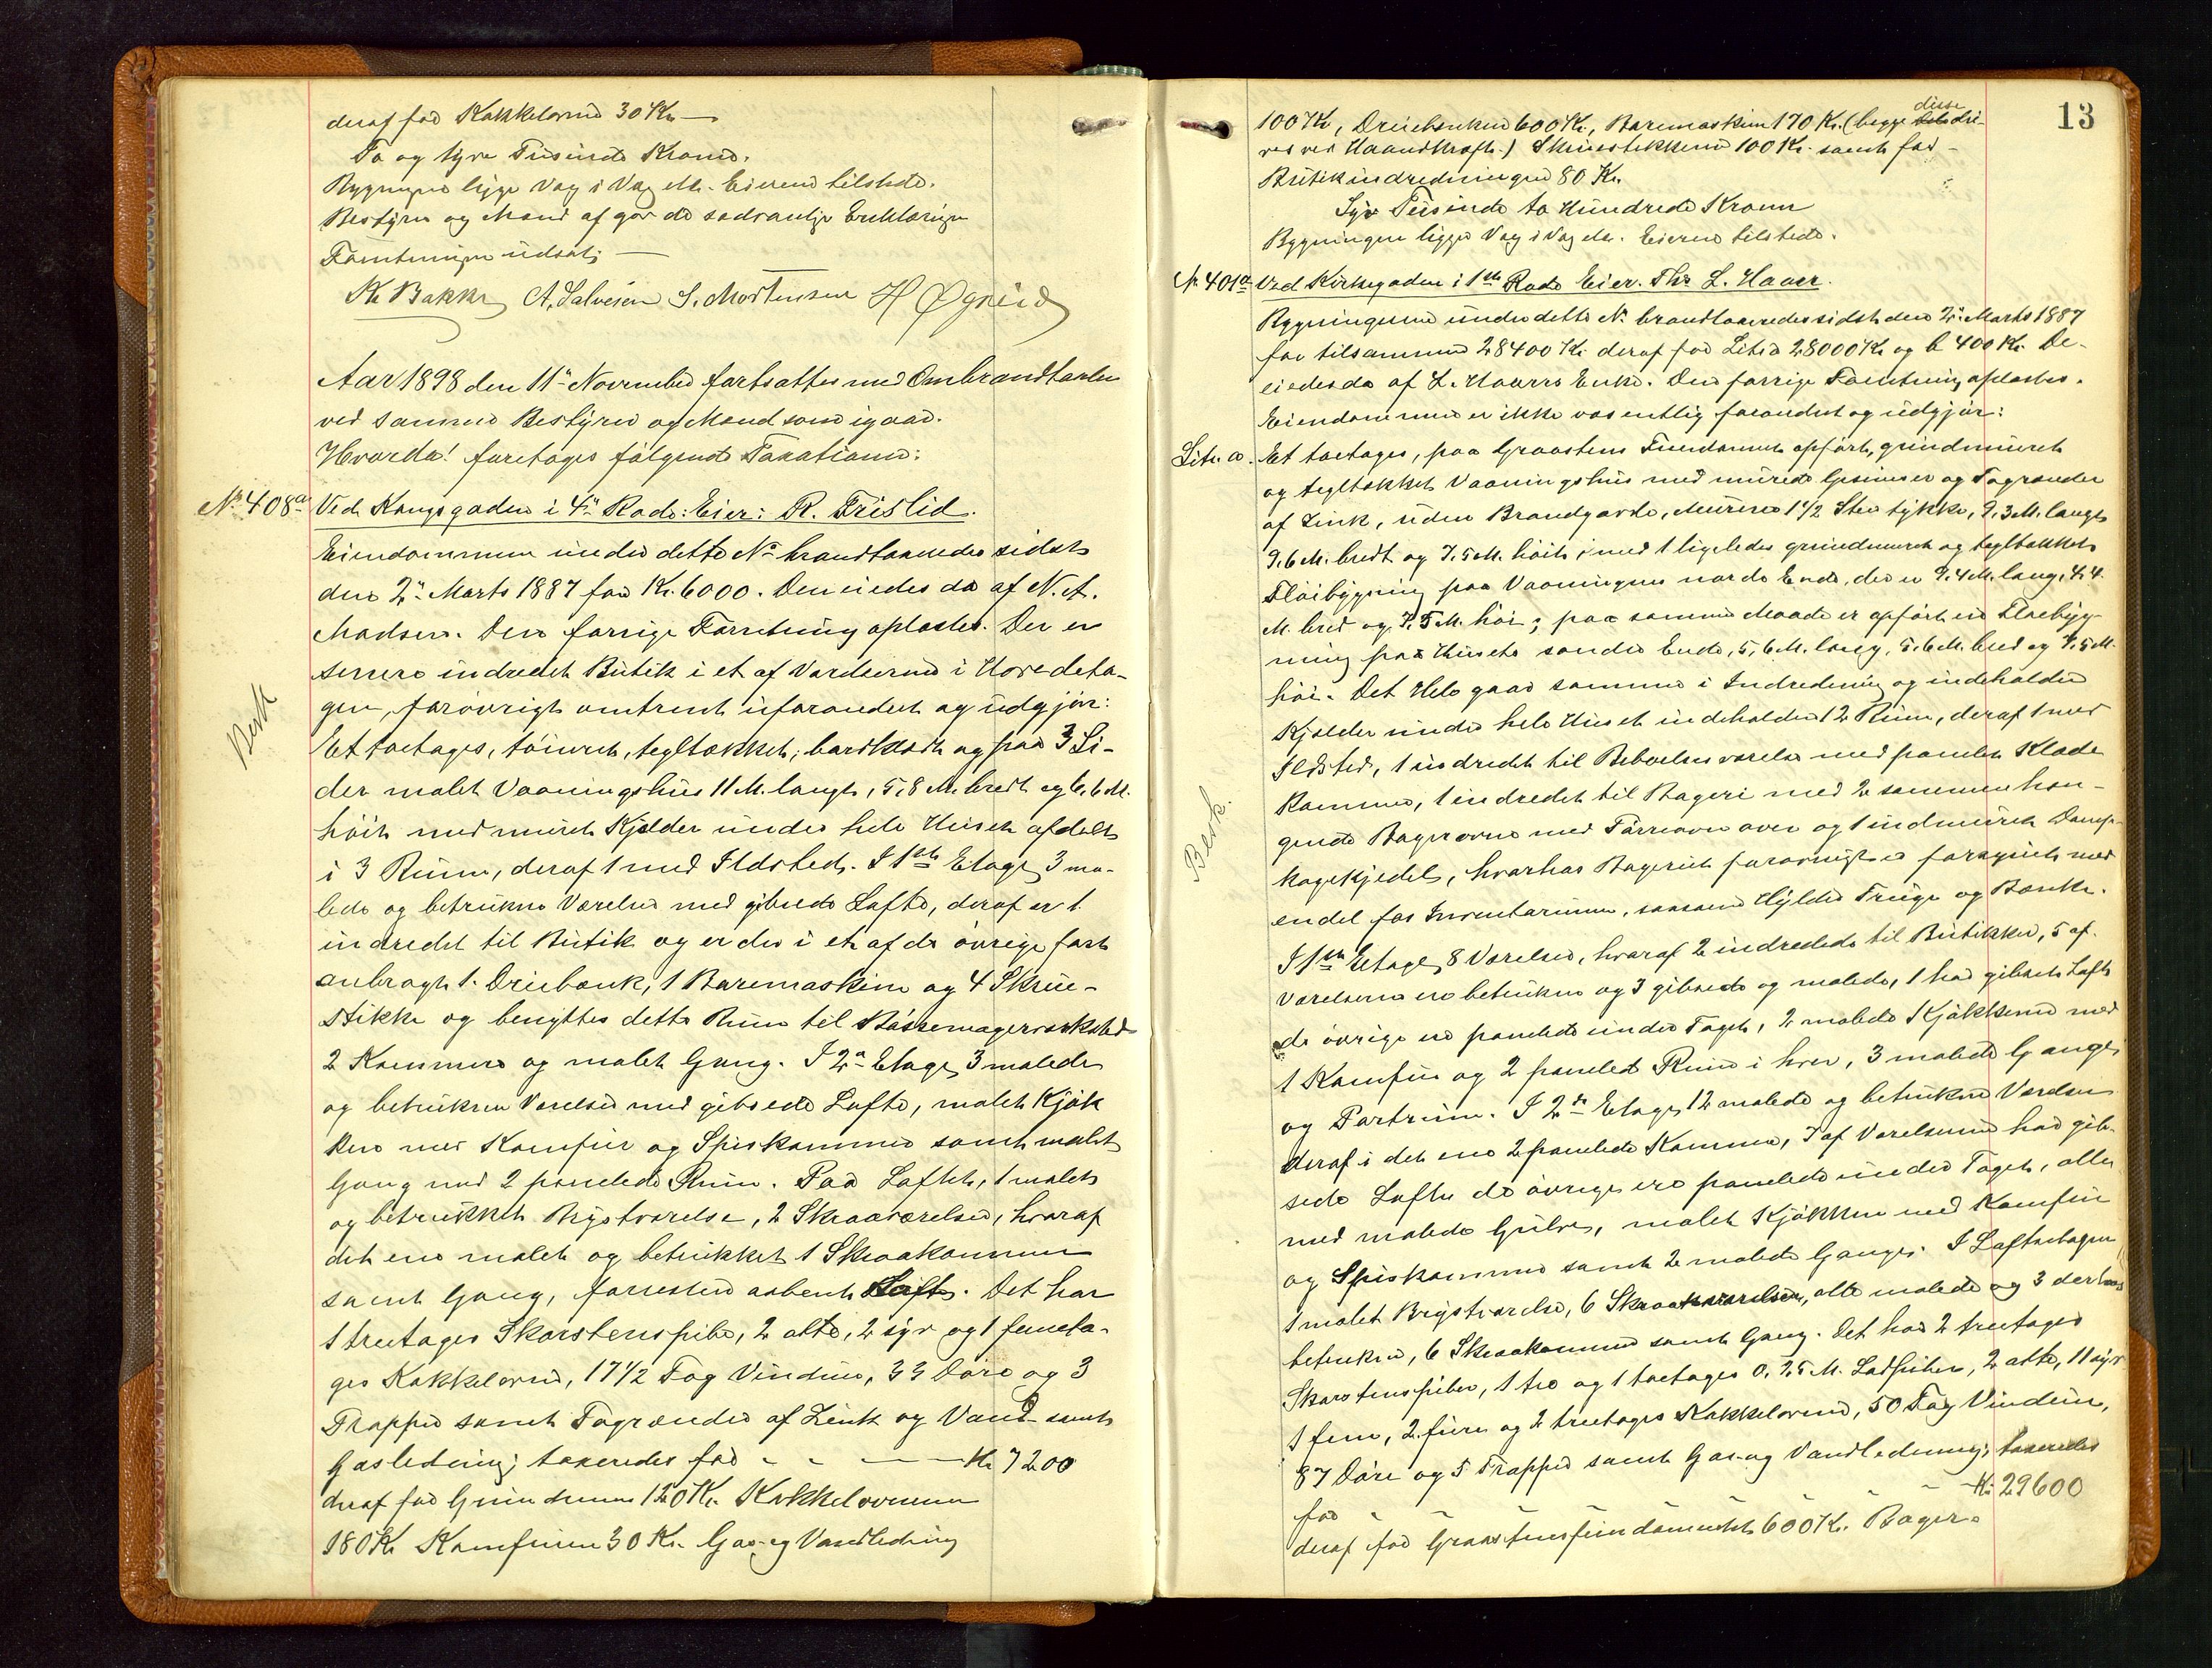 deraf for Kakkelovne 30 Kr —
To og tyve Tusinde Kroner.
Bygningen ligge Væg i Væg etc. Eieren tilstede.
Bestyrer og Mænd afgav de sædvanlige Erklæringer
Forretningen udsat; —
K. Bakke A. Salvesen S. Mortensen
Aar 1898 den 11te November fortsattes med Ombrandtaxten
ved samme Bestyrer og Mænd som igaar.
Hvorda! foretages følgende Taxationer:
No 408a Ved Kongsgaden i 4de Rode: Eier: R. Frislid.
Eiendommen under dette No brandtaxeredes sidst
den 2den Marts 1887 for Kr. 6000. Den eiedes da af N. A.
Madsen. Den forrige Forretning oplæstes. Der er
senere indredet Butik i et af Værelserne i Hovedeta-
gen, forøvrigt omtrent uforandret og udgjør:
Berk
Et toetages, tømret, tegltækket, bordklædt og paa 3 Si-
der malet Vaaningshus 11 M. langt, 5,8 M. bredt og 6,6 M.
høit med muret Kjelder under hele Huset afdelt
i 3 Rum, deraf 1 med Ildsted. I 1ste Etage 3 ma-
lede og betrukne Værelser med gibsede Lofte, deraf er 1
indredet til Butik og er der i et af de øvrige fast
anbragt 1 Dreiebænk, 1 Boremaskine og 4 Skrue-
stikke og benyttes dette Rum til Bøssemagerværksted
2 Kammere og malet Gang. I 2den Etage 3 malede
og betrukne Værelser med gibsede Lofte, malet Kjøk
ken med Komfur og Spiskammer samt malet
Gang med 2 panelede Rum. Paa Loftet, 1 malet
og betrukket Brystværelse, 2 Skraaværelser, hvoraf
det ene malet og betrukket 1 Skraakammer
samt Gang, forresten aabent Loft. Det har
1 treetages Skorstenspibe, 2 otte, 2 syv og 1 femeta-
ges Kakkelovne, 17 1/2 Fag Vinduer, 33 Døre og 3
Trapper samt Tagrender af Zink og Vand- samt
Gasledning; taxeredes for - - — — Kr 7200
deraf for Grundmuren 120 Kr. Kakkelovnene
180 Kr Komfuren 30 Kr. Gas- og Vandledning
13
100 Kr, Dreiebænken 600 Kr, Boremaskinen 170 Kr. (begge disse dri-
ves ved Haandkraft.) Skruestikkerne 100 Kr. samt for
Butikindredningen 80 Kr.
Syv Tusinde to Hundrede Kroner
Bygningen ligger Væg i Væg etc. Eieren tilstede.
No 401a Ved Kirkegaden i 1ste Rode Eier. Thr L. Haaer.
Bygningerne under dette No brandtaxeredes sidst den 2den Marts 1887
for tilsammen 28400 Kr deraf for Litr a 28000 Kr og b 400 Kr. De
eiedes da af L. Haaers Enke. Den forrige Forretning oplæstes.
Eiendommen er ikke væsentlig forandret og udgjør:
Litr. a. Et toetages, paa Graastens Fundament opført, grundmuret
og tegltækket Vaaningshus med murede Gesimser og Tagrender
af Zink, uden Brandgavle, Murene 1 1/2 Sten tykke, 9,3 M. langt
9,6 M. bredt og 7,5 M. høit; med 1 ligeledes grundmuret og tegltækket
Fløibygning paa Vaaningens nordre Ende, der er 9,4 M. lang, 4,4
M. bred og 7,5 M. høi; paa samme Maade er opført en Fløibyg-
ning paa Husets søndre Ende, 5,6 M. lang, 5,6 M. bred og 7,5 M.
høi. Det Hele gaar sammen i Indredning og indeholder
Kjelder under hele Huset indeholder 12 Rum, deraf 1 med
Ildsted, 1 indredet til Beboelsesværelse med panelet Klæde
Berk.
Kammer, 1 indredet til Bageri med 2 sammenhæn-
gende Bagerovne med Tørreovn over og 1 indmuret Damp-
kogekjedel, hvorhos Bageriet forøvrigt er forsynet med
endel fast Inventarium, saasom Hylder Truge og Bænke.
I 1ste Etage 8 Værelser, hvoraf 2 indredede til Butikker, 5 af
Værelserne er betrukne og 3 gibsede og malede, 1 har gibset Loft
de øvrige er panelede under Taget, 2 malede Kjøkkener med
1 Komfur og 2 panelede Rum i hver, 3 malede Gange
og Portrum. I 2den Etage 12 malede og betrukne Værelser
deraf i det ene 2 panelede Kammer, 7 af Værelserne har gib-
sede Lofte de øvrige ere panelede under Taget, alle
med malede Gulve, malet Kjøkken med Komfur
og Spiskammer samt 2 malede Gange. I Loftsetagen
1 malet Brystværelse, 6 Skraaværelser, alle malede og 3 derhos
betrukne, 6 Skraakammer samt Gang. Det har 2 treetages
Skorstenspiber, 1 tre og 1 toetages 0,25 M. Ladpiber, 2 otte, 11 syv
1 fem, 2 fire og 2 treetages Kakkelovne, 50 Fag Vinduer,
87 Døre og 5 Trapper samt Gas- og Vandledning; taxeredes
for - - - - - Kr. 29600
deraf for Graastensfundamentet 600 Kr. Bager-